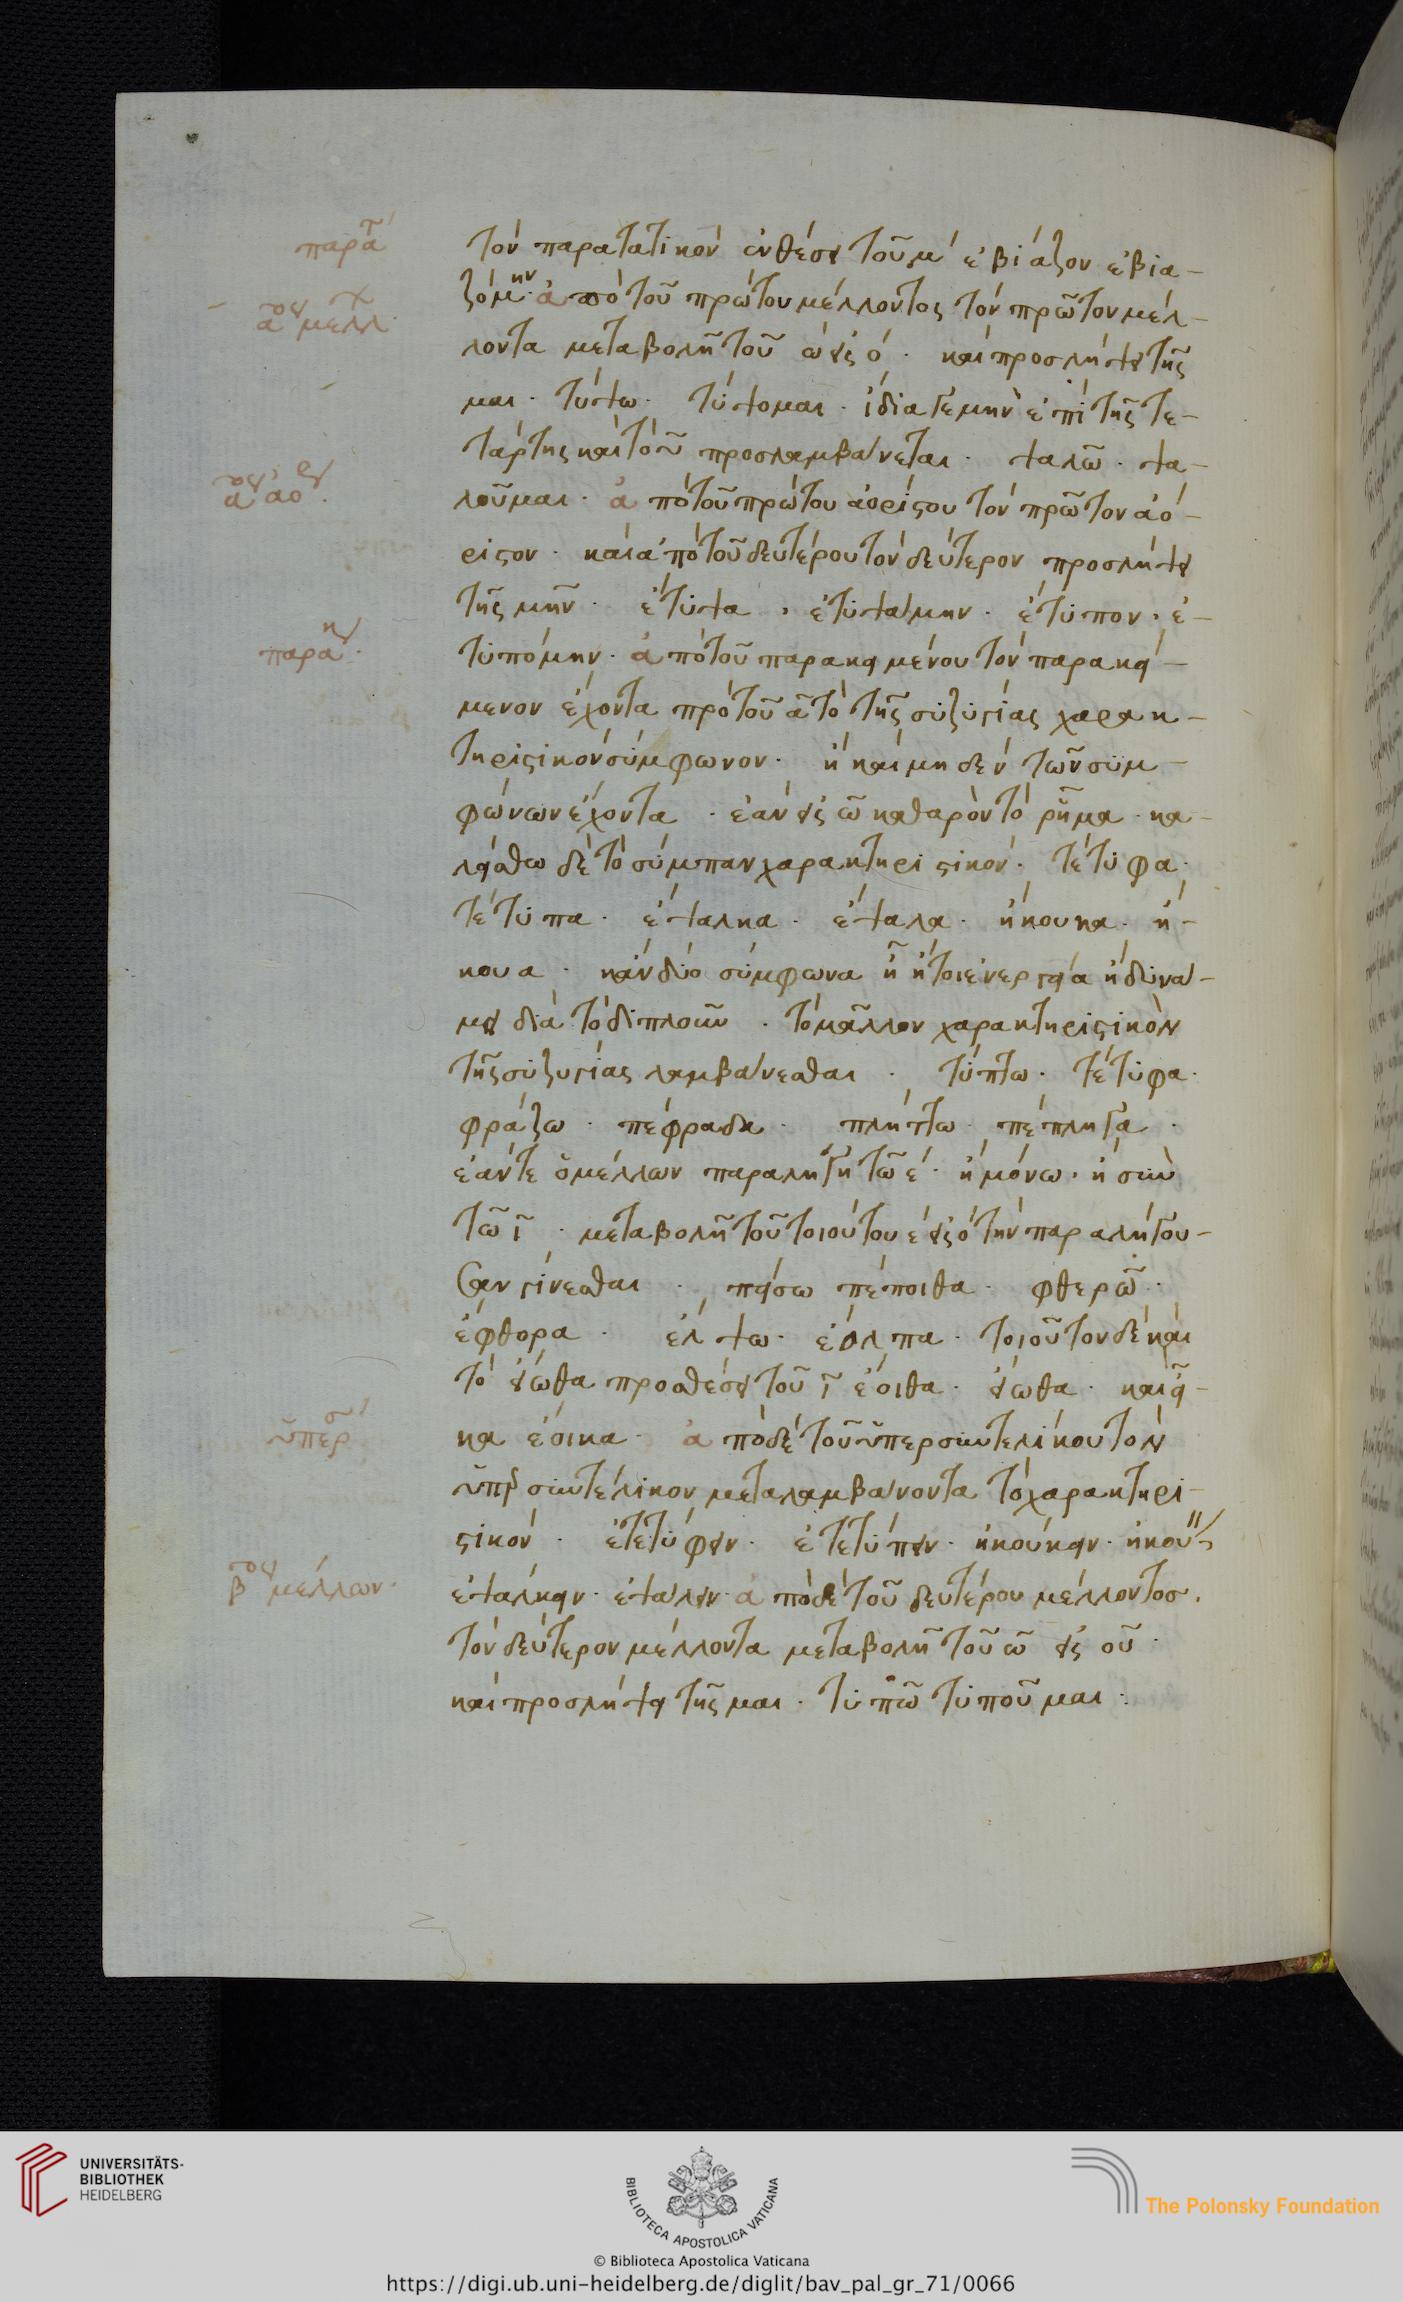 παρατ
τὸν παρατατικὸν ἐνθέσει τοῦ μ ἐβίαζον ἐβια-
ζόμην. ἀπὸ τοῦ πρώτου μέλλοντος τὸν πρῶτον μέλ-
αου μελλ.
λοντα μεταβολῇ τοῦ ω εἰς ο. καὶ προσλήψει τῆς
μαι. τύψω. τύψομαι. ἰδία γε μὴν ἐπὶ τῆς τε-
τάρτης καὶ τὸ υ προσλαμβάνεται. ψαλῶ. ψα-
αου ἀορ.
λοῦμαι. ἀπὸ τοῦ πρώτου ἀορίστου τὸν πρῶτον ἀό-
ριστον. καὶ ἀπὸ τοῦ δευτέρου τὸν δεύτερον προσλήψει
τῆς μην. ἔτυψα. ἐτυψάμην. ἔτυπον. ἐ-
παρακ.
τυπόμην. ἀπὸ τοῦ παρακειμένου τὸν παρακεί-
μενον ἔχοντα πρὸ τοῦ α τὸ τῆς συζυγίας χαρακ-
τηριστικὸν σύμφωνον. ἢ καὶ μηδὲν τῶν συμ-
φώνων ἔχοντα. ἐὰν εἰς ω καθαρὸν τὸ ῥῆμα. κα-
λείσθω δὲ τὸ σύμπαν χαρακτηριστικόν. τέτυφα.
τέτυπα. ἔψαλκα. ἔψαλα. ἤκουκα. ἤ-
κουα. κἂν δύο σύμφωνα ᾖ ἤτοι ἐνεργείᾳ ἢ δυνά-
μει διὰ τὸ διπλοῦν. τὸ μᾶλλον χαρακτηριστικὸν
τῆς συζυγίας λαμβάνεσθαι. τύπτω. τέτυφα.
φράζω. πέφραδα. πλήττω. πέπληγα.
ἐάν τε ὁ μέλλων παραλήγη τῷ ε. ἢ μόνω. ἢ σὺν
τῷ ι. μεταβολῇ τοῦ τοιούτου ε εἰς ο τὴν παραλήγου-
σαν γίνεσθαι. πείσω πέποιθα. φθερῶ.
ἔφθορα. ἔλψω. ἔολπα. τοιοῦτον δὲ καὶ
τὸ εἴωθα προσθέσει τοῦ ι ἔοιθα. εἴωθα. καὶ εἶ-
ὑπερσ
κα ἔοικα. ἀπὸ δὲ τοῦ ὑπερσυντελίκου τὸν
ὑπερσυντέλικον μεταλαμβάνοντα τὸ χαρακτηρι-
στικόν. ἐτετύφειν. ἐτετύπειν. ἠκούκειν. ἠκού
βου μέλλων.
ἐψάλκειν. ἐψάλειν. ἀπὸ δὲ τοῦ δευτέρου μέλλοντος.
τὸν δεύτερον μέλλοντα μεταβολῇ τοῦ ω εἰς ου.
καὶ προσλήψει τῆς μαι. τυπῶ τυποῦμαι.
UNIVERSITÄTS-
BIBLIOTHEK
HEIDELBERG
BIBLIOTECA APOSTOLICA VATICANA
© Biblioteca Apostolica Vaticana
The Polonsky Foundation
https://digi.ub.uni-heidelberg.de/diglit/bav_pal_gr_71/0066